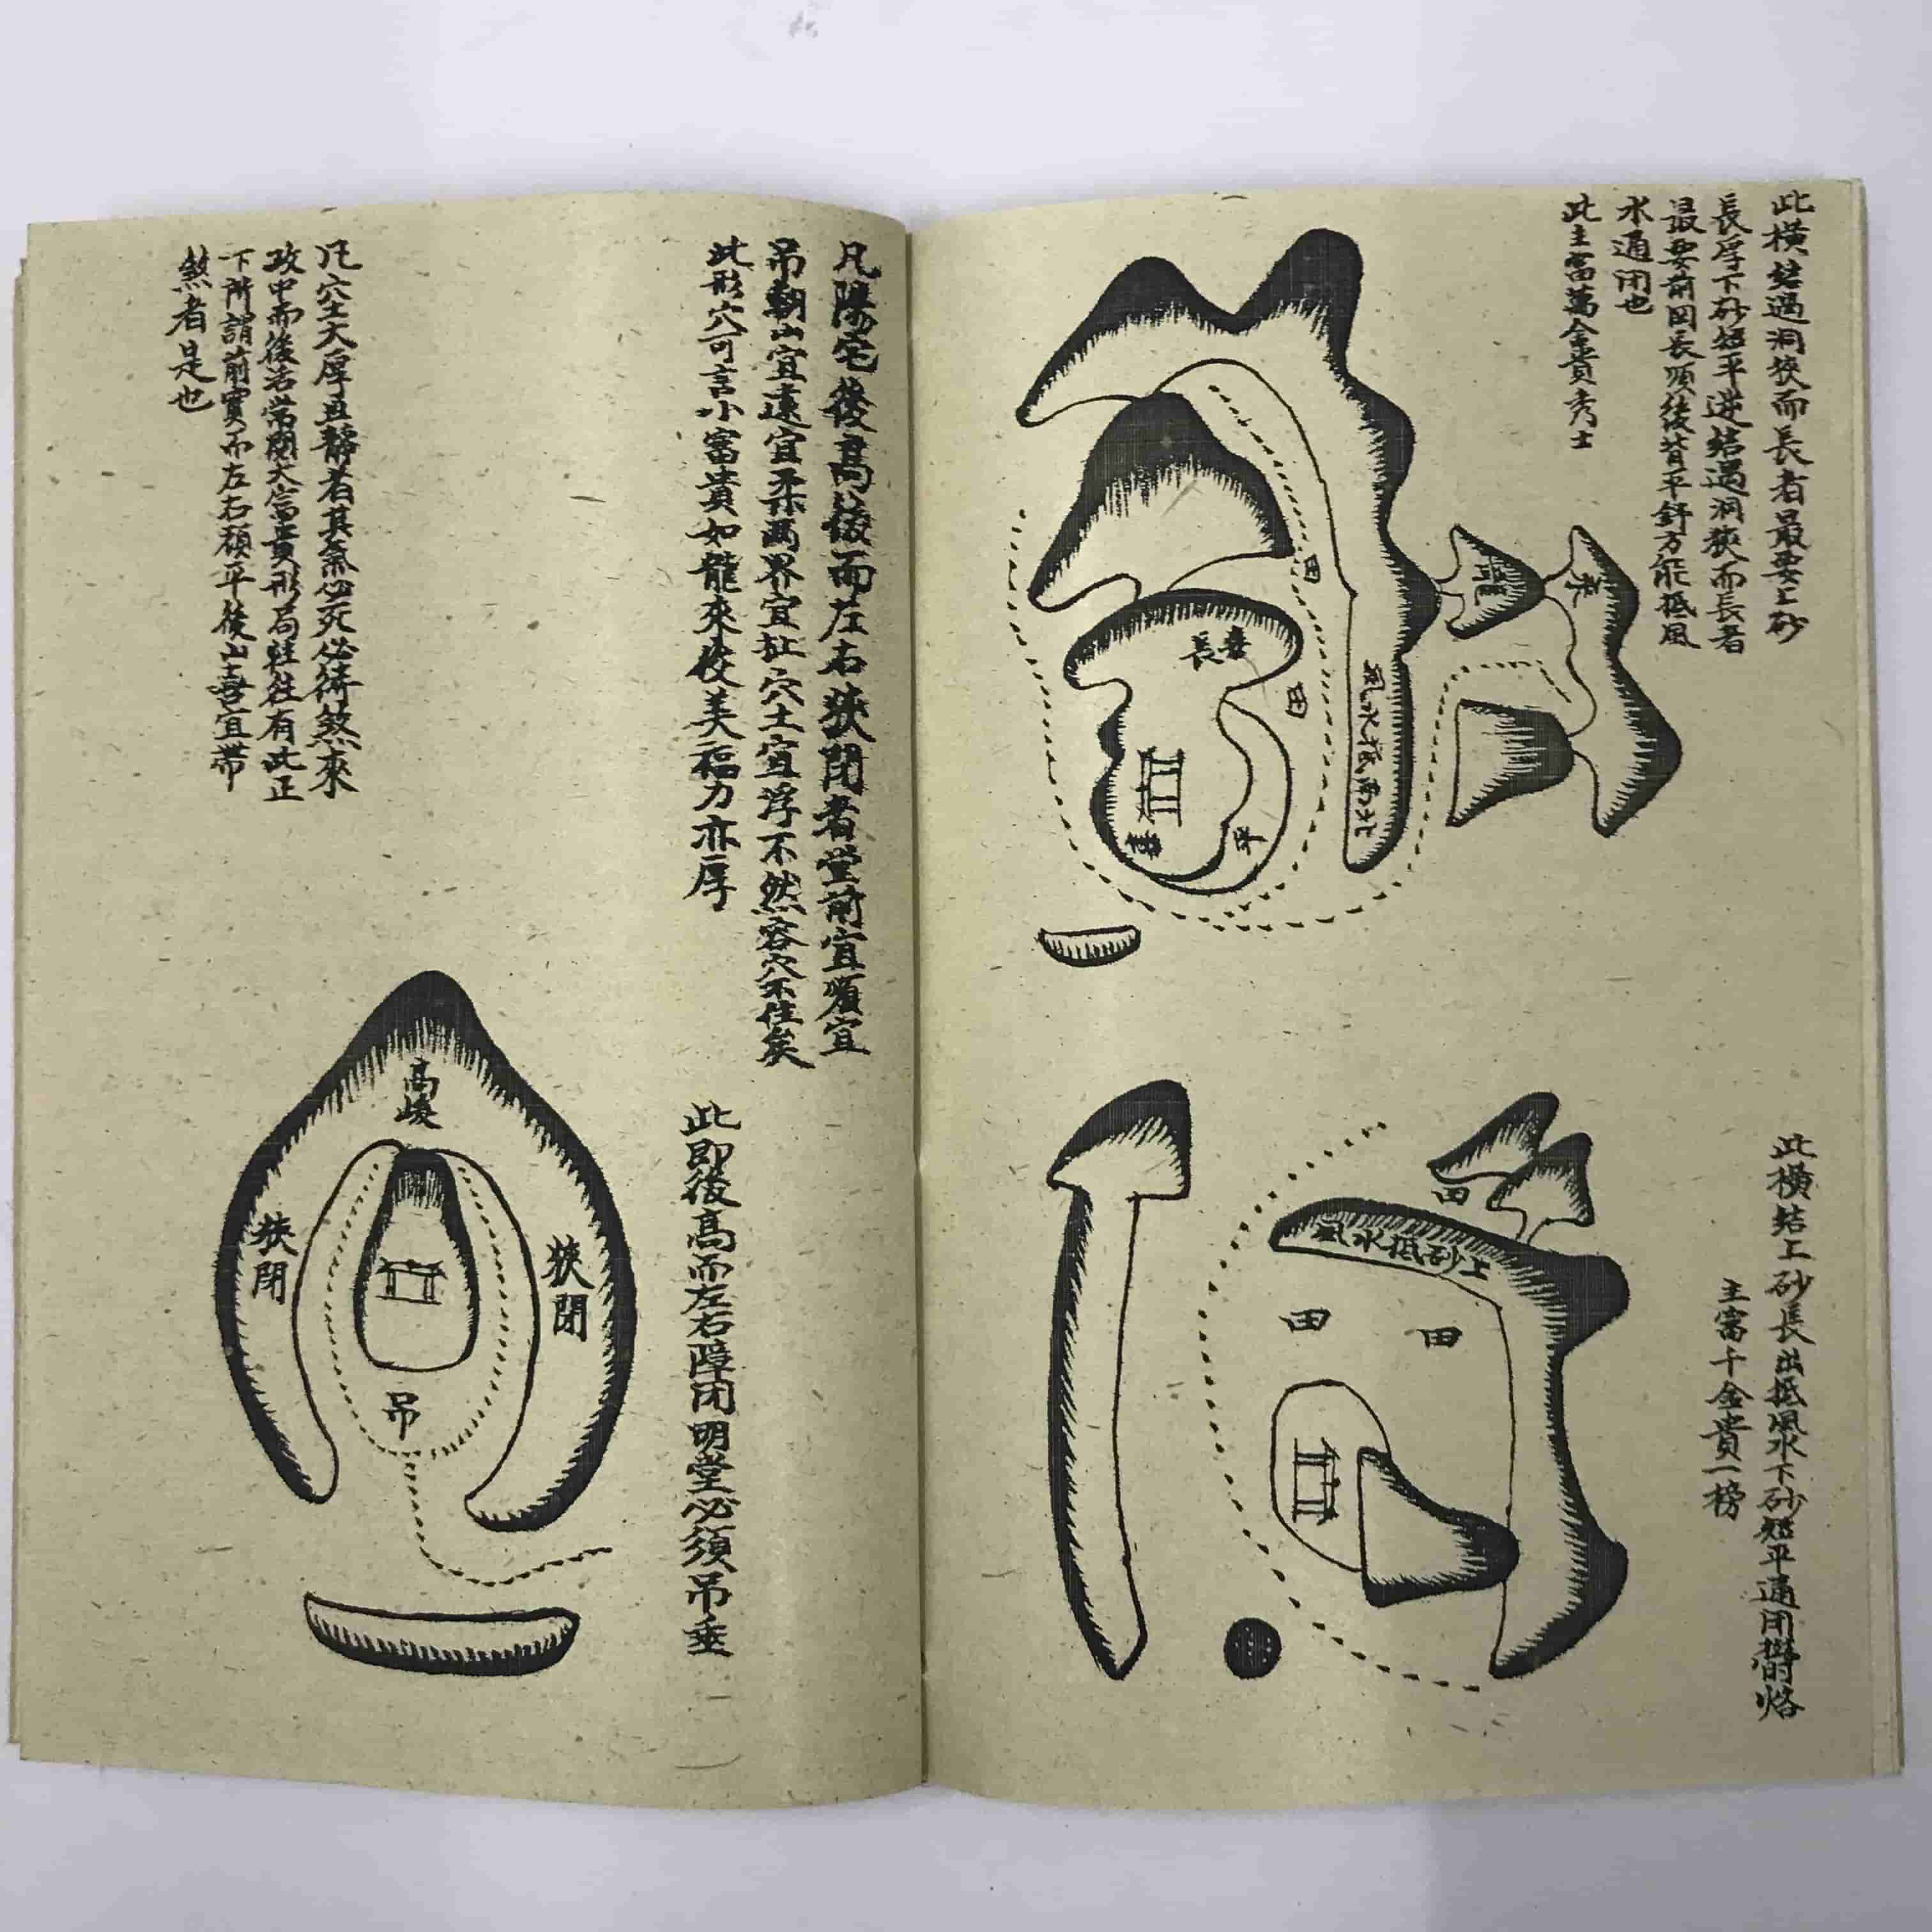 此橫結過洞狹而長者最要上砂
長厚下砂短平逆結過洞狹而長者
最要前田長順後背平舒方能抵風
水通閉也
此主富萬金貴秀士
來
龍
田
長
田
平
此橫結上砂長出抵風水下砂短平通用
主富千金貴一榜
田
風水抵砂上
田
田
凡陽宅後高後而左右狹閉者堂前宜順宜
吊朝山宜遠宜柔兩界宜扯穴土宜浮不然容穴不住矣
此形穴可言小富貴如龍來俊美福力亦厚
此即後高而左右障閉明堂必須吊垂
凡穴土大厚且靜者其氣必死必待煞來
攻中而後活常開大富貴形局往往有此正
下所謂前實而左右頹平後山喜宜帶
煞者是也
高峻
狹閉
狹閉
吊